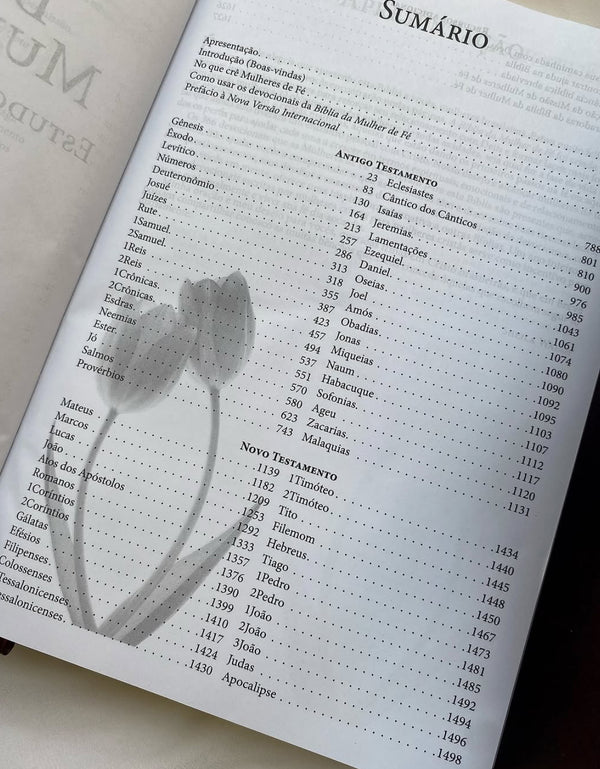 MU
ESTUDO
SUMÁRIO
Apresentação
Introdução (Boas-vindas)
No que crê Mulheres de Fé
Como usar os devocionais da Bíblia da Mulher de Fé
Prefácio à Nova Versão Internacional
ANTIGO TESTAMENTO
Gênesis 23
Êxodo 83
Levítico 130
Números 164
Deuteronômio 213
Josué 257
Juízes 286
Rute 313
1Samuel 318
2Samuel 355
1Reis 387
2Reis 423
1Crônicas 457
2Crônicas 494
Esdras 537
Neemias 551
Ester 570
Jó 580
Salmos 623
Provérbios 743
Eclesiastes 788
Cântico dos Cânticos 801
Isaías 810
Jeremias 900
Lamentações 976
Ezequiel 985
Daniel 1043
Oseias 1061
Joel 1074
Amós 1080
Obadias 1090
Jonas 1092
Miqueias 1095
Naum 1103
Habacuque 1107
Sofonias 1112
Ageu 1117
Zacarias 1120
Malaquias 1131
NOVO TESTAMENTO
Mateus 1139
Marcos 1182
Lucas 1209
João 1253
Atos dos Apóstolos 1292
Romanos 1333
1Coríntios 1357
2Coríntios 1376
Gálatas 1390
Efésios 1399
Filipenses 1410
Colossenses 1417
Tessalonicenses 1424
essalonicenses 1430
1Timóteo 1434
2Timóteo 1440
Tito 1445
Filemom 1448
Hebreus 1450
Tiago 1467
1Pedro 1473
2Pedro 1481
1João 1485
2João 1492
3João 1494
Judas 1496
Apocalipse 1498